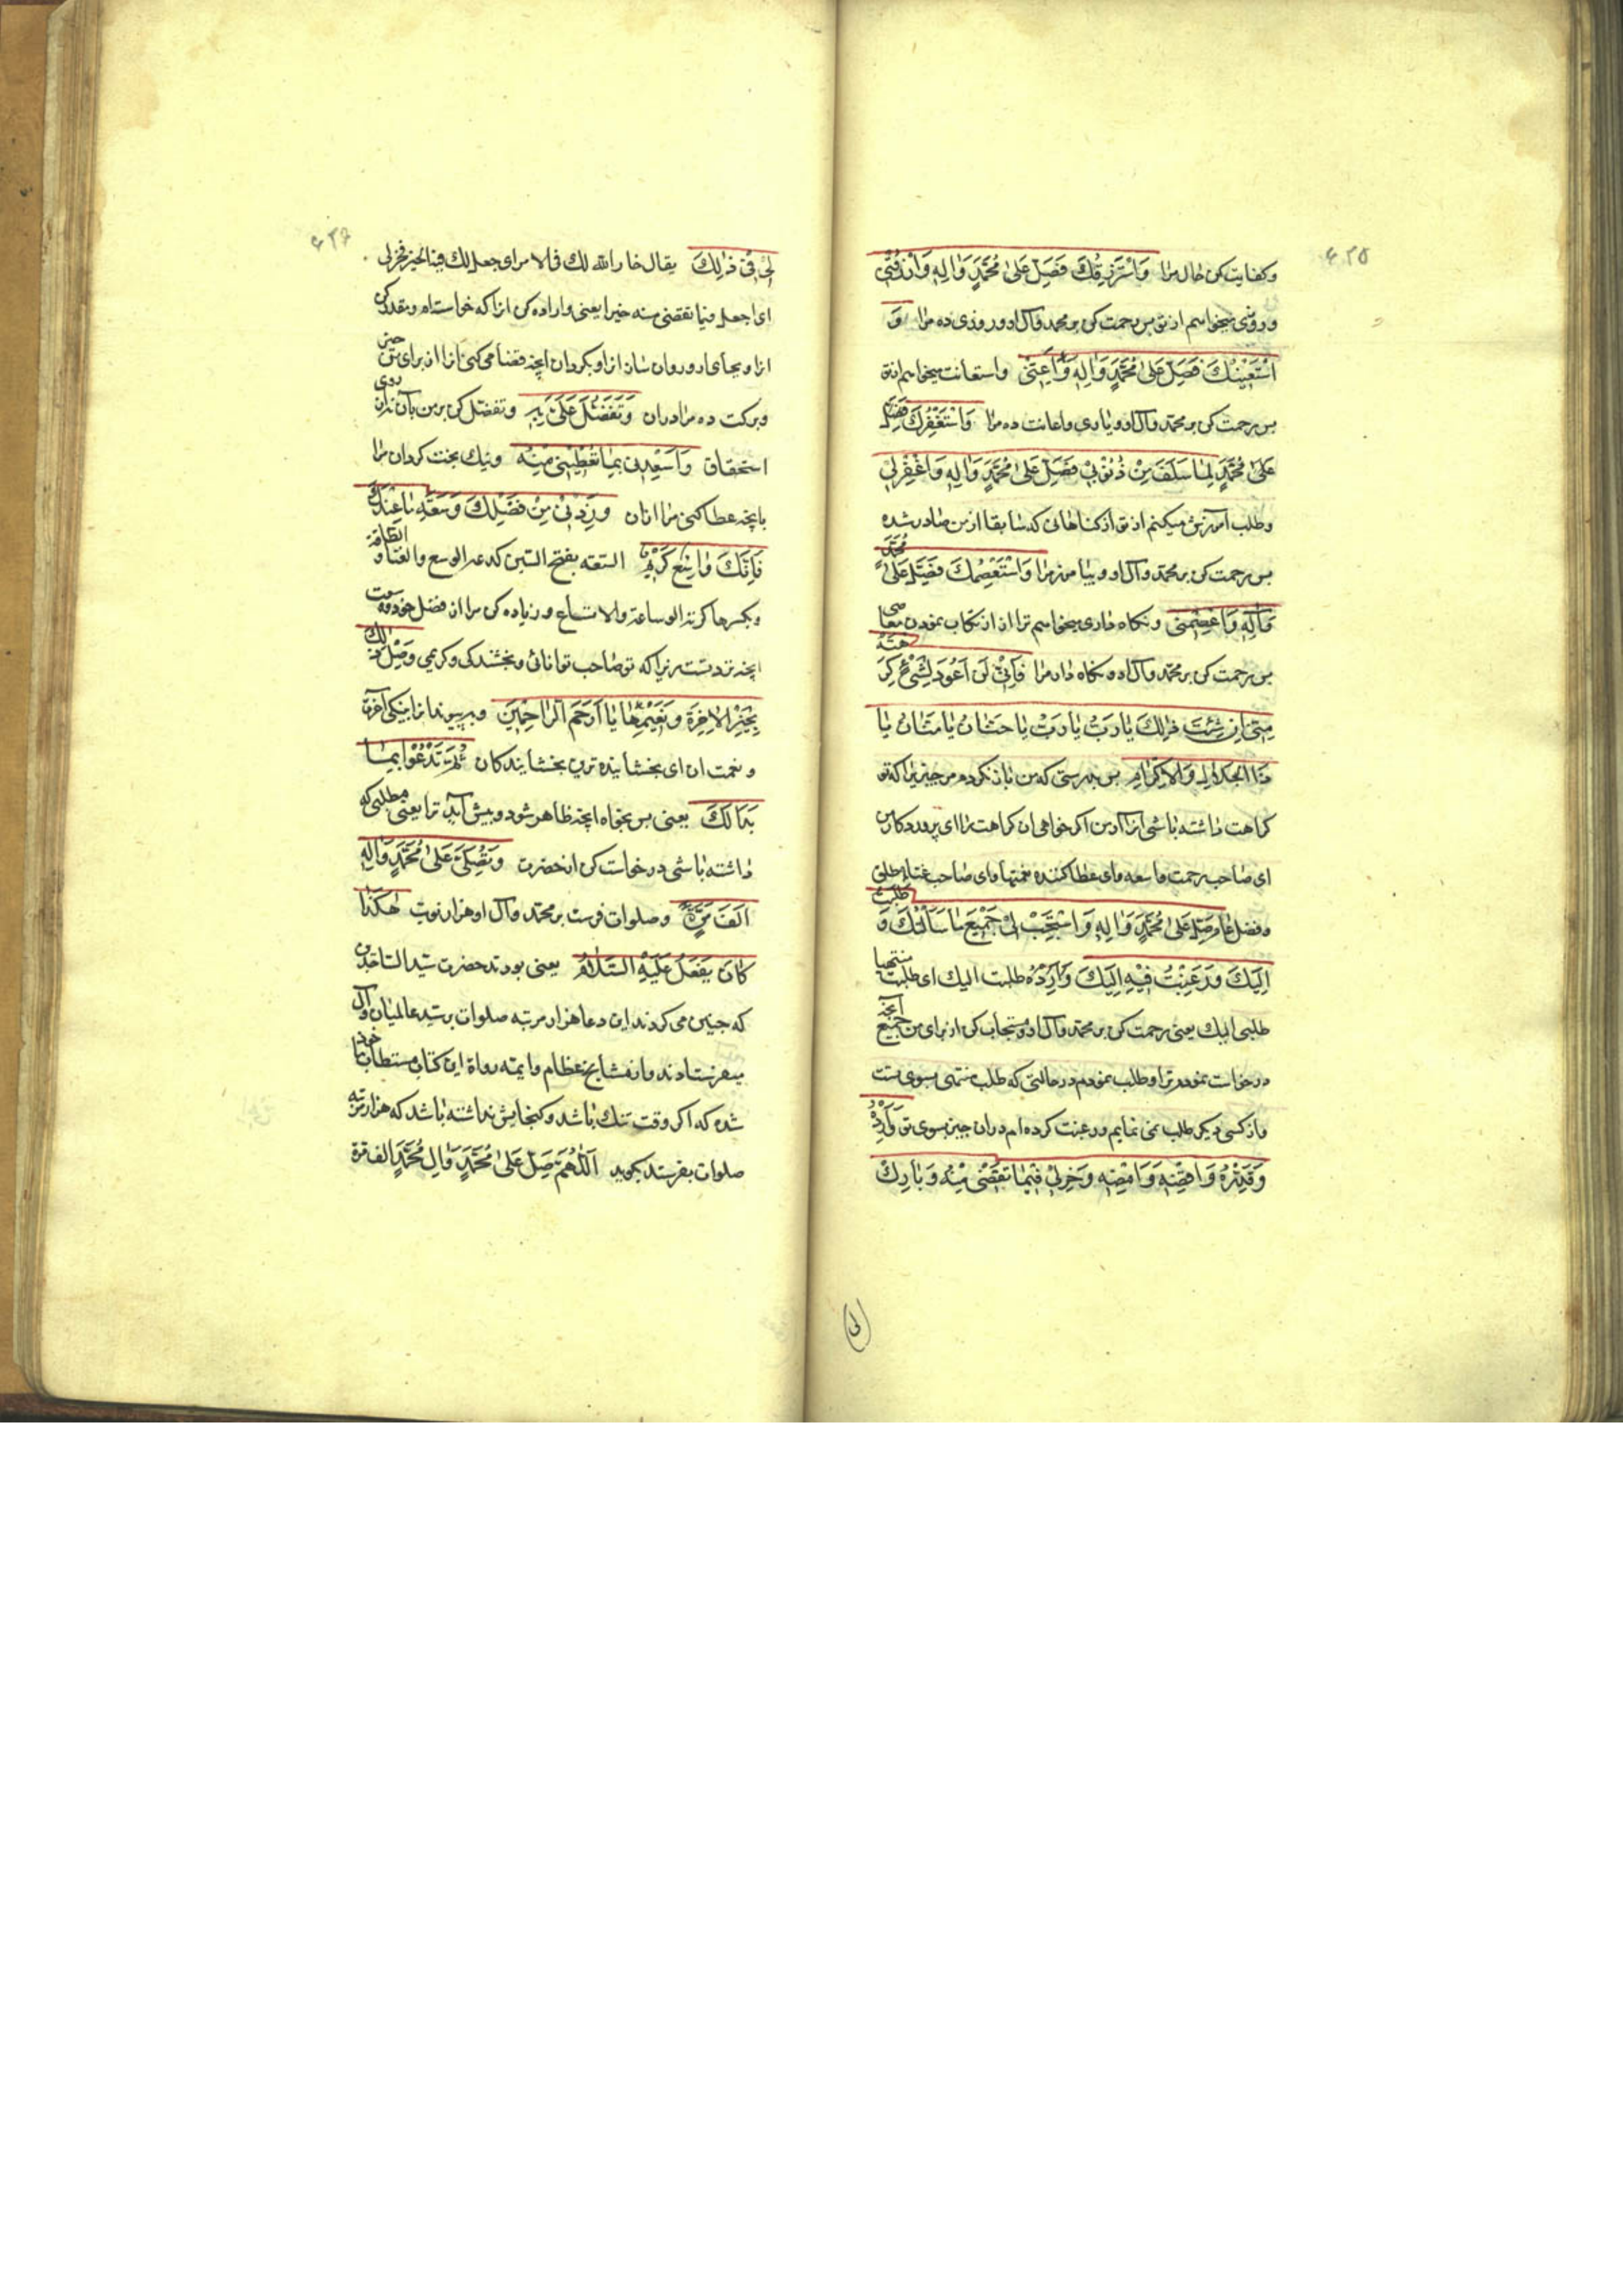 ۴۲۵
وکفایت کن حال مرا وَاَسْتَرْزِقُكَ فَصَلِّ عَلىٰ مُحَمَّدٍ وَاٰلِهِ وَارْزُقْنِي
و روزی میخواهم از تو پس رحمت کن بر محمد و آل او و روزی ده مرا وَ
اَسْتَعِيْنُكَ فَصَلِّ عَلىٰ مُحَمَّدٍ وَاٰلِهِ وَاَعِنِّي واستعانت میخواهم از تو
پس رحمت کن بر محمد و آل او و یاری و اعانت ده مرا وَاَسْتَغْفِرُكَ فَصَلِّ
عَلىٰ مُحَمَّدٍ لِمٰا سَلَفَ مِنْ ذُنُوْبِيْ فَصَلِّ عَلىٰ مُحَمَّدٍ وَاٰلِهِ وَاغْفِرْلِي
و طلب آمرزش میکنم از تو از کناهانی که سابقا از من صادر شده
پس رحمت کن بر محمد و آل او و بیامرز مرا وَاَسْتَعْصِمُكَ فَصَلِّ عَلىٰ مُحَمَّدٍ
وَاٰلِهِ وَاعْصِمْنِي و نکاه داری میخواهم ترا از ارتکاب نمودن معاصی
پس رحمت کن بر محمد و آل او و نکاه دار مرا فَاِنِّيْ لَنْ اَعُوْدَ لِشَيْءٍ كَرِهْتَهُ
مِنِّي اِنْ شِئْتَ ذٰلِكَ يٰا رَبِّ يٰا رَبِّ يٰا حَنّٰانُ يٰا مَنّٰانُ يٰا
ذَا الْجَلاٰلِ وَالْاِكْرٰامِ پس بدرستی که من باز نکردم مر چیزیرا که تو
کراهت داشته باشی انرا از من اکر خواهی ان کراهت را ای پروردکار من
ای صاحب رحمت واسعه و ای عطا کننده نعمتها و ای صاحب غنای مطلق
و فضل عام صَلِّ عَلىٰ مُحَمَّدٍ وَاٰلِهِ وَاسْتَجِبْ لِيْ جَمِيْعَ مٰا سَاَلْتُكَ وَ طَلَبْتُ
اِلَيْكَ وَرَغِبْتُ فِيْهِ اِلَيْكَ وَاَرِدْهُ طلبت الیک ای طلبت منتهیا
طلبی الیک یعنی رحمت کن بر محمد و آل او و مستجاب کن از برای من جمیع آنچه
درخواست نمودم ترا و طلب نمودم در حالتی که طلب منتهی بسوی تست
و از کسی دیکر طلب نمی نمایم و رغبت کرده ام در ان چیز بسوی تو وَاَرِدْهُ
وَقَدِّرْهُ وَاقْضِهِ وَاَمْضِهِ وَخِرْلِيْ فِيْمٰا تَقْضِيْ مِنْهُ وَبٰارِكْ
۴۲۶
لِيْ فِيْ ذٰلِكَ یقال خار الله لک فی الامر ای جعل لک فیه الخیر فخر لی
ای اجعل فیما تقضی منه خیرا یعنی و اراده کن انرا که خواسته ام و مقدر کن
انرا و بجای اور و روان ساز انرا و بکردان انچه قضا می کنی انرا از برای من خیر
و برکت ده مرا در ان وَتَفَضَّلْ عَلَيَّ بِهِ و تفضل کن بر من بآن نه از روی
استحقاق وَاَسْعِدْنِي بِمٰا تُعْطِيْنِي مِنْهُ و نیک بخت کردان مرا
بانچه عطا کنی مرا از ان وَزِدْنِيْ مِنْ فَضْلِكَ وَسَعَةِ مٰا عِنْدَكَ
فَاِنَّكَ وٰاسِعٌ كَرِيْمٌ السعة بفتح السین کدعة الوسع والغناء و الطاقة
و بکسرها کزنة الوساعة والاتساع و زیاده کن مرا از فضل خود و سعت
انچه نزد تست زیرا که تو صاحب توانائی و بخشندکی و کریمی وَصِلْ ذٰلِكَ
بِخَيْرِ الْاٰخِرَةِ وَنَعِيْمِهٰا يٰا اَرْحَمَ الرّٰاحِمِيْنَ و بپیوند انرا بنیکی آخرة
و نعمت ان ای بخشاینده ترین بخشایندکان ثُمَّ تَدْعُوْا بِمٰا
بَدٰا لَكَ یعنی پس بخواه انچه ظاهر شود و پیش آید ترا یعنی مطلبی که
داشته باشی درخواست کن از حضرت وَتُصَلِّيَ عَلىٰ مُحَمَّدٍ وَاٰلِهِ
اَلْفَ مَرَّةٍ و صلوات فرست بر محمد و آل او هزار نوبت هٰكَذٰا
كٰانَ يَفْعَلُ عَلَيْهِ السَّلاٰمُ یعنی بودند حضرت سید الساجدین
که چنین می کردند این دعا هزار مرتبه صلوات بر سید عالمیان و آل خود
میفرستادند و از مشایخ عظام و ایمه رواة این کتاب مستطاب
شده که اکر وقت تنک باشد و کنجایش نداشته باشد که هزار مرتبه
صلوات بفرستد بکوید اَللّٰهُمَّ صَلِّ عَلىٰ مُحَمَّدٍ وَاٰلِ مُحَمَّدٍ الف مرة
لی